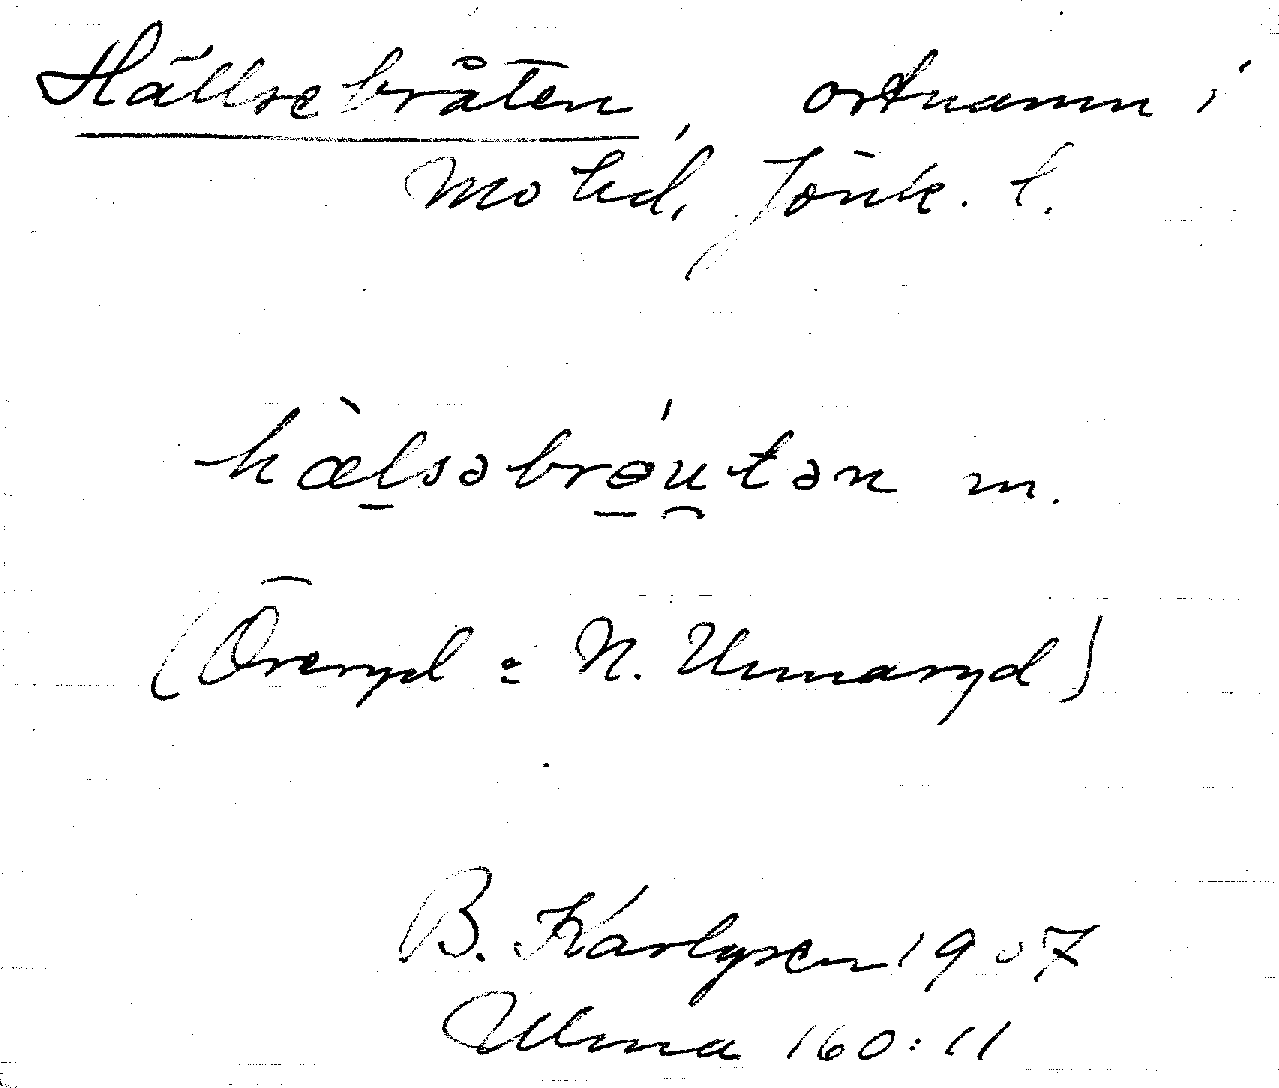 Hällsebråten, ortnamn i
Mo hd, Jönk. l.
hæ̀l̠səbrə̠́u̯tən m.
(Öreryd = N. Unnaryd)
B. Karlgren 1907
Ulma 160:11